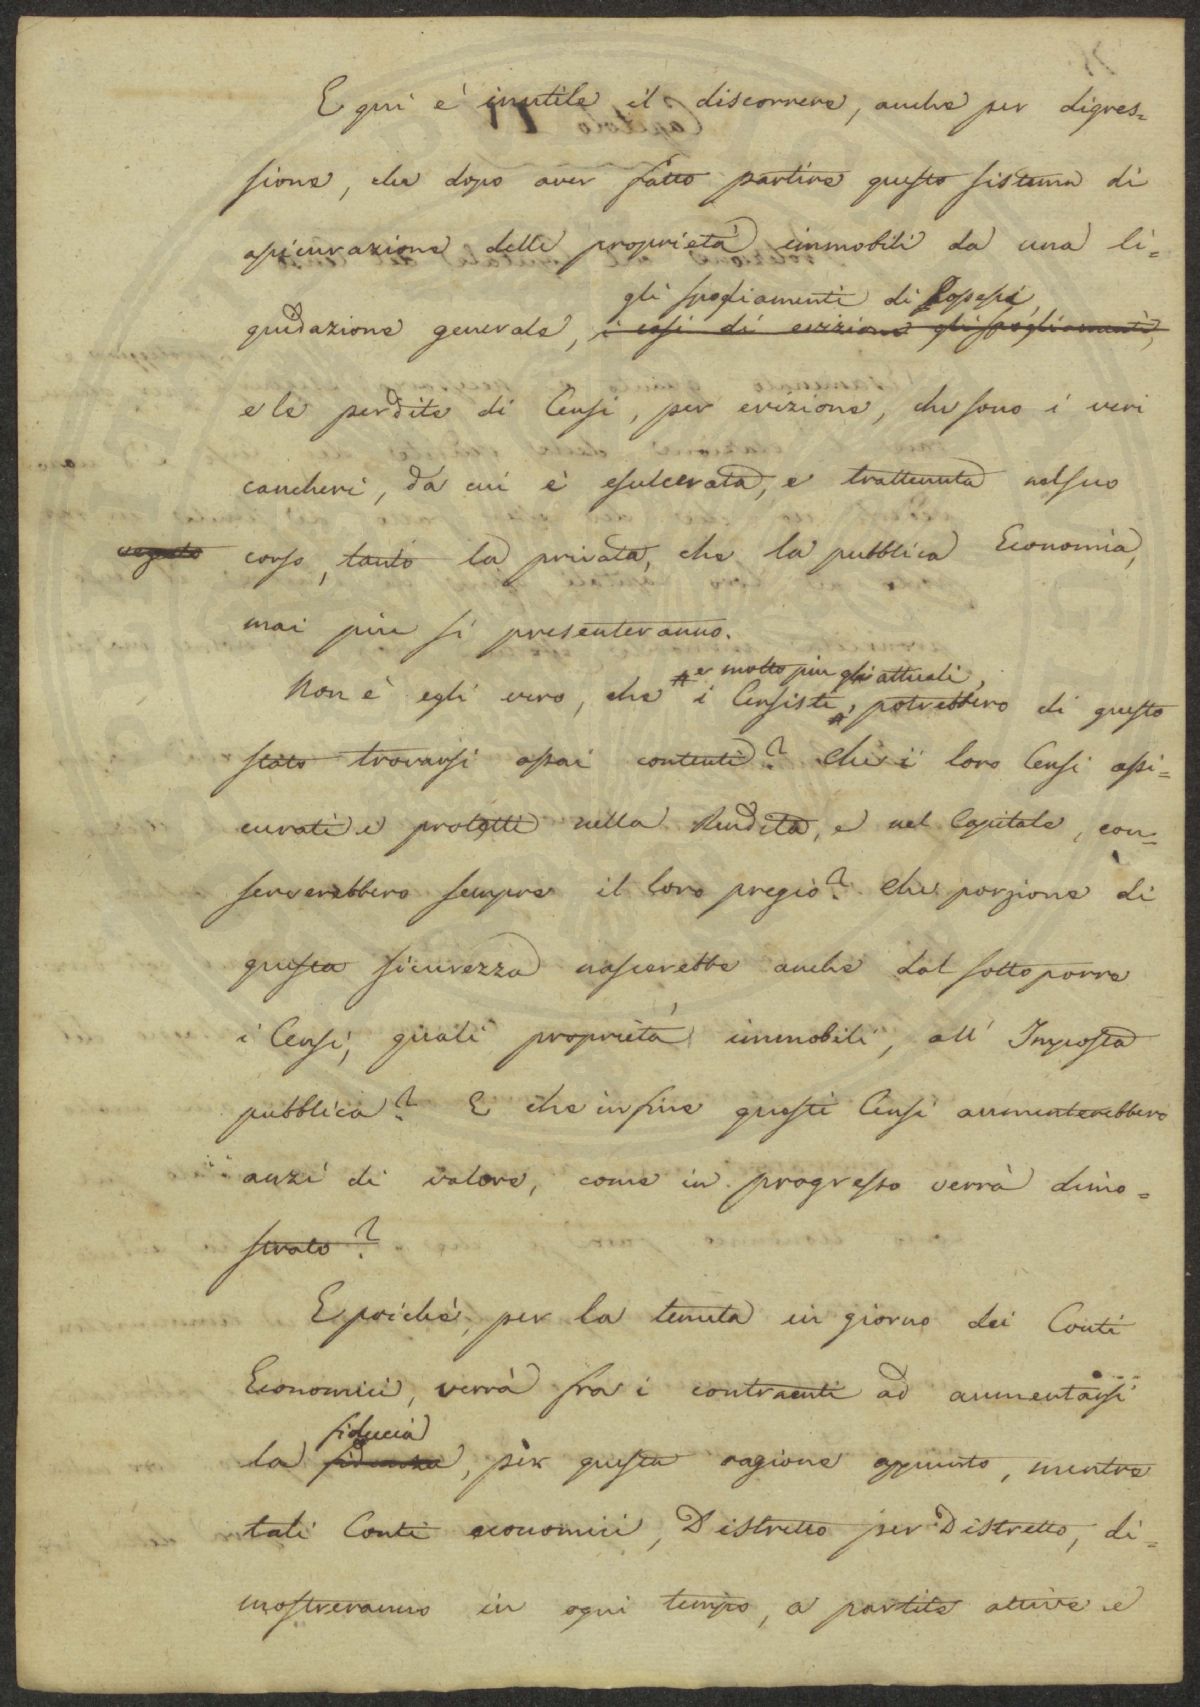 E qui è inutile il discorrere, anche per digres=
sione, che dopo aver fatto partire questo sistema di
assicurazione delle proprietà immobili da una li=
gli spogliamenti di Possessi,
quidazione generale, i casi di evizione gli spogliamenti,
e le perdite di Censi, per evizione, che sono i veri
cancheri, da cui è esulcerata, e trattenuta nel suo
corso, tanto la privata, che la pubblica Economia,
mai più si presenteranno.
e molto più gli attuali,
Non è egli vero, che i Censisti, potrebbero di questo
stato trovarsi assai contenti? Che i loro Censi assi=
curati e protetti nella Rendita, e nel Capitale, con=
serverebbero sempre il loro pregio? Che porzione di
questa sicurezza nascerebbe anche dal sottoporre
i Censi, quali proprietà immobili, all' Imposta
pubblica? E che infine questi Censi aumenterebbero
anzi di valore, come in progresso verrà dimo=
strato?
E poichè, per la tenuta in giorno dei Conti
Economici, verrà fra i contraenti ad aumentarsi
fiducia
la fidanza, per questa ragione appunto, mentre
tali Conti economici, Distretto per Distretto, di=
mostreranno in ogni tempo, a partite attive e